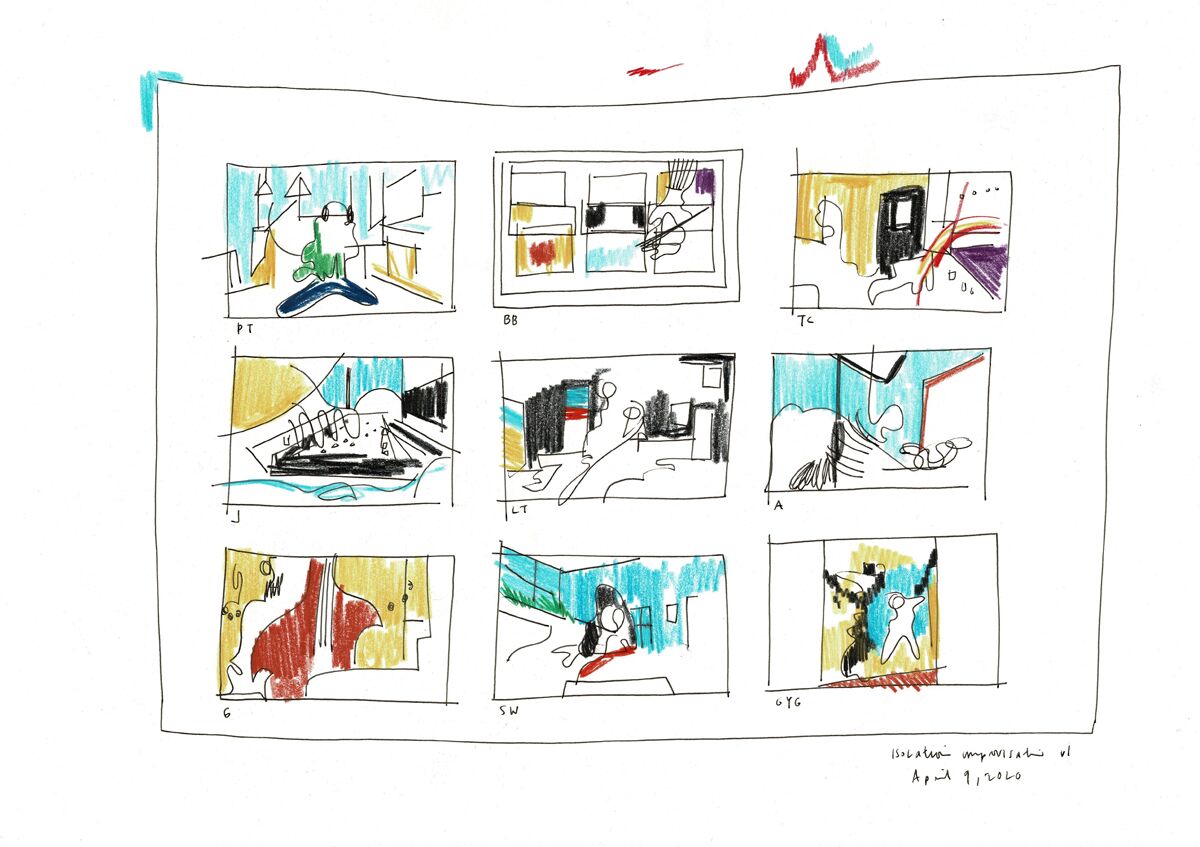 PT
BB
TC
J
LT
A
G
SW
GYG
Isolation improvisation v1
April 9, 2020